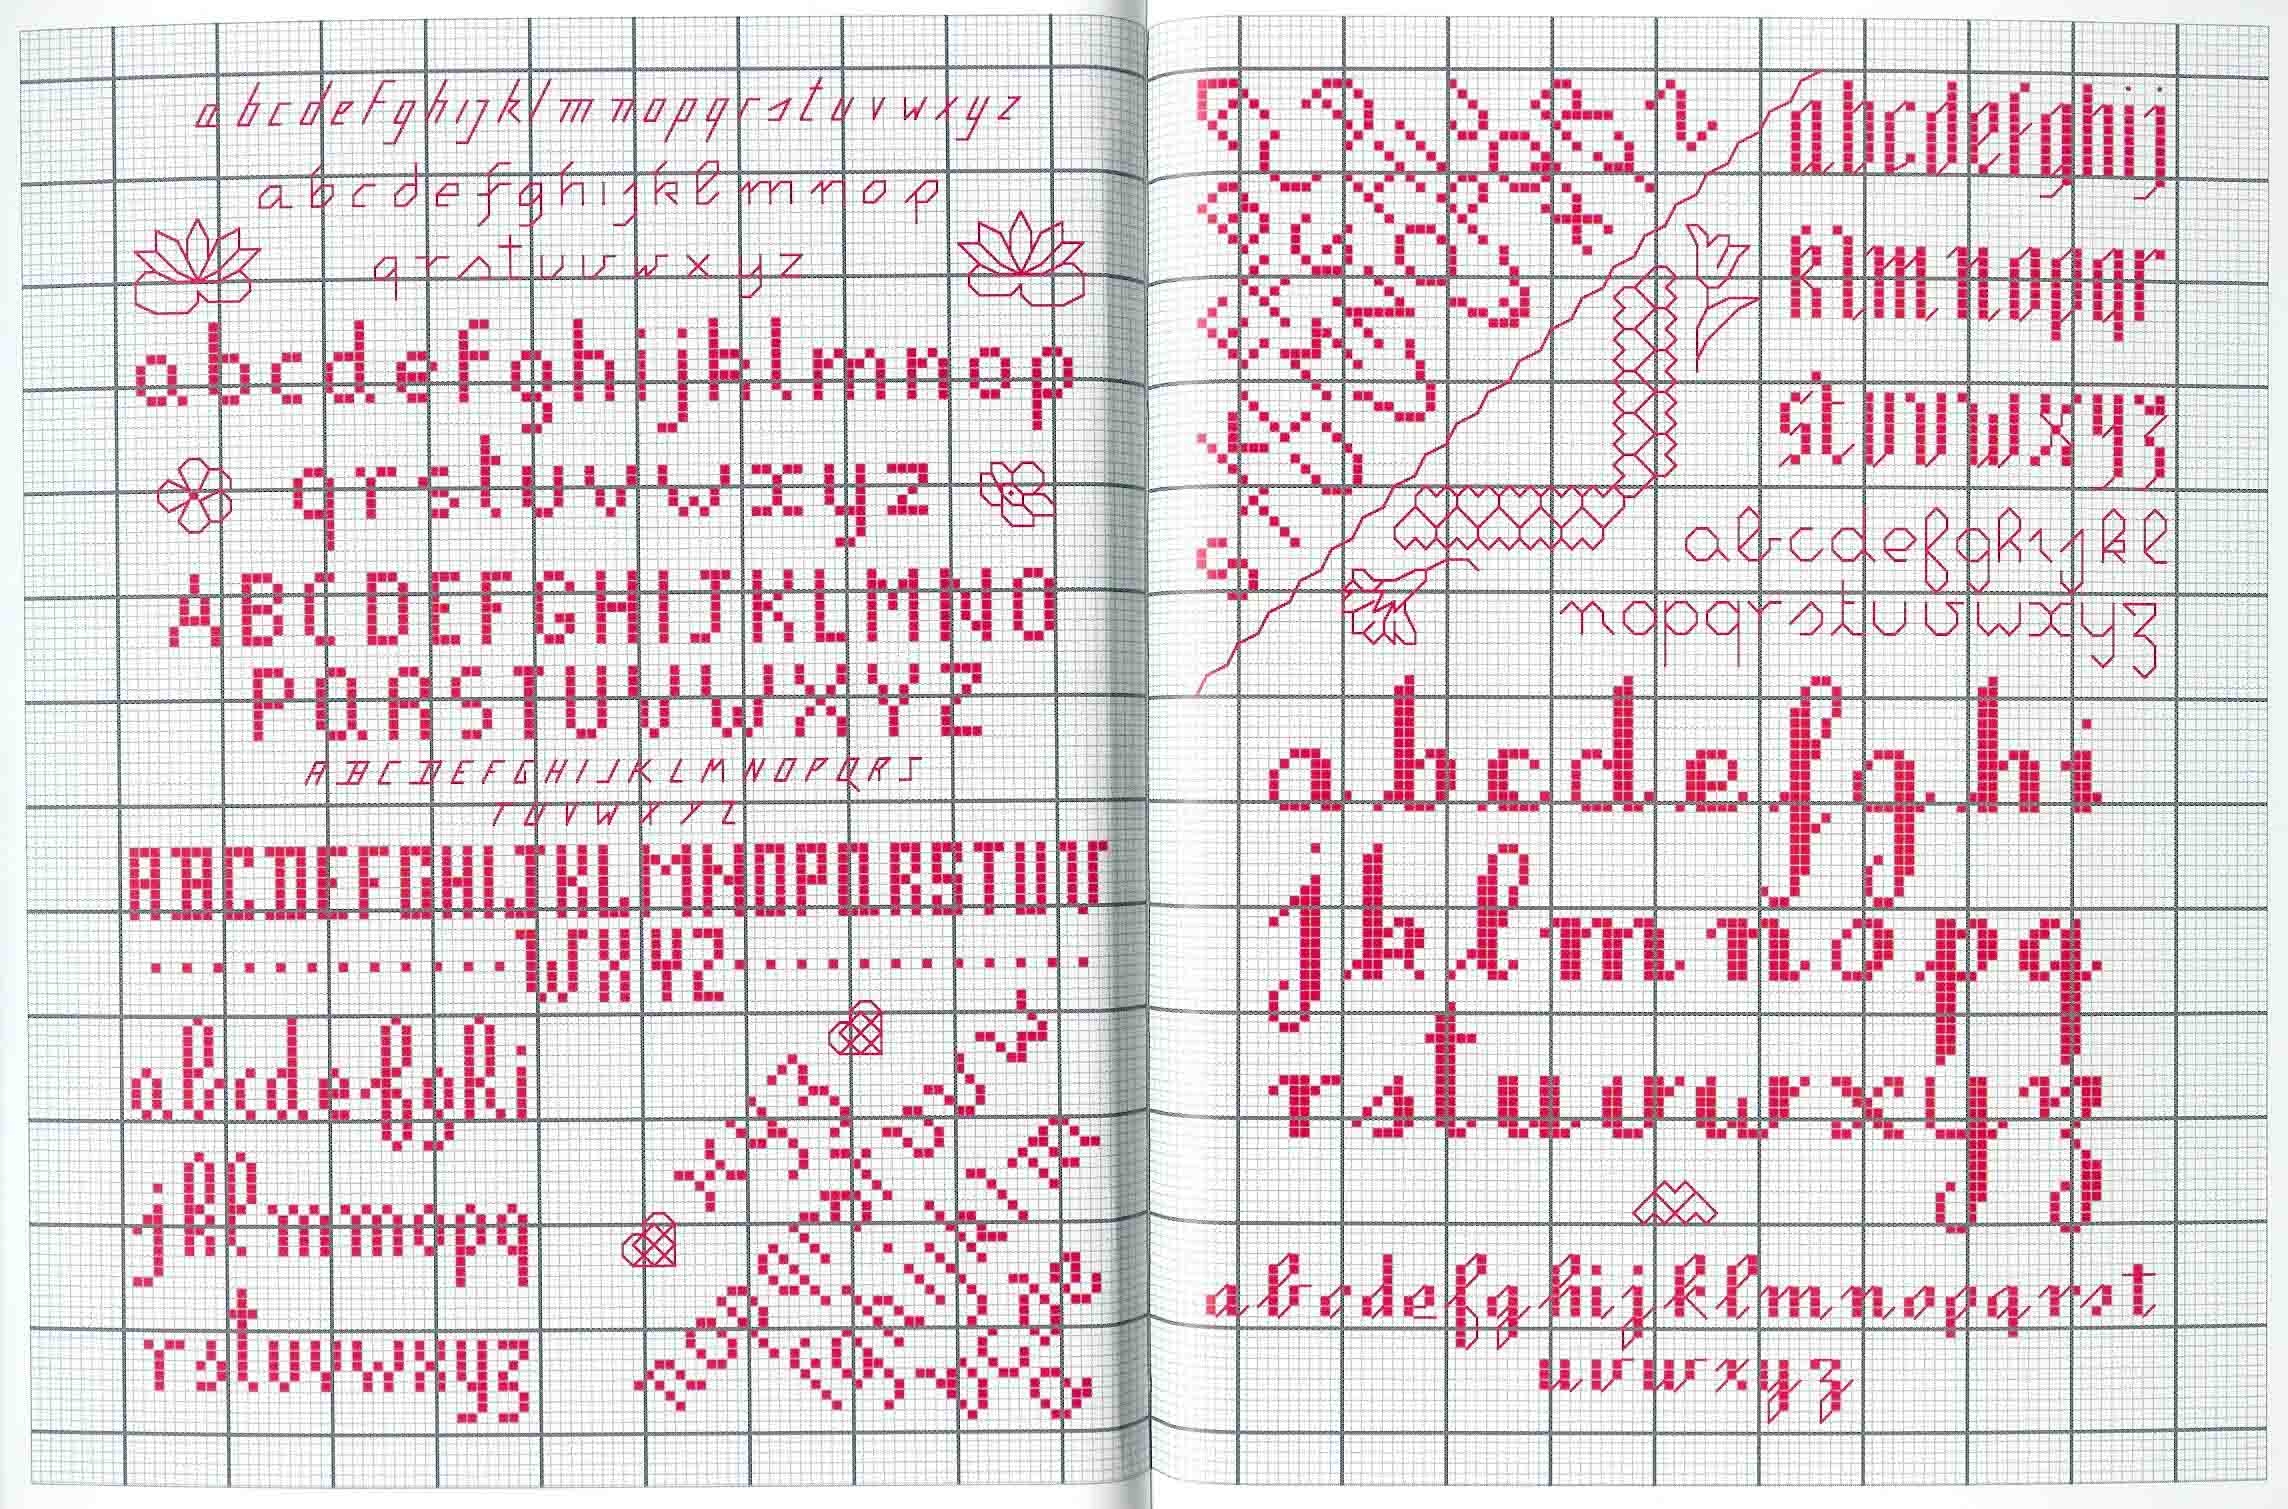 abcdefghijklmnopqrstuvwxyz
abcdefghijklmnop
qrstuvwxyz
abcdefghijklmnop
qrstuvwxyz
ABCDEFGHIJKLMNO
PQRSTUVWXYZ
ABCDEFGHIJKLMNOPQRS
TUVWXYZ
ABCDEFGHIJKLMNOPQRSTUV
WXYZ
abcdefghi
jklmnopq
rstuvwxyz
abcdefghij
klmnopqr
stuvwxyz
abcdefghijkl
mnopqrstuvwxyz
abcdefghi
jklmnopq
rstuvwxyz
abcdefghijklmnopqrst
uvwxyz